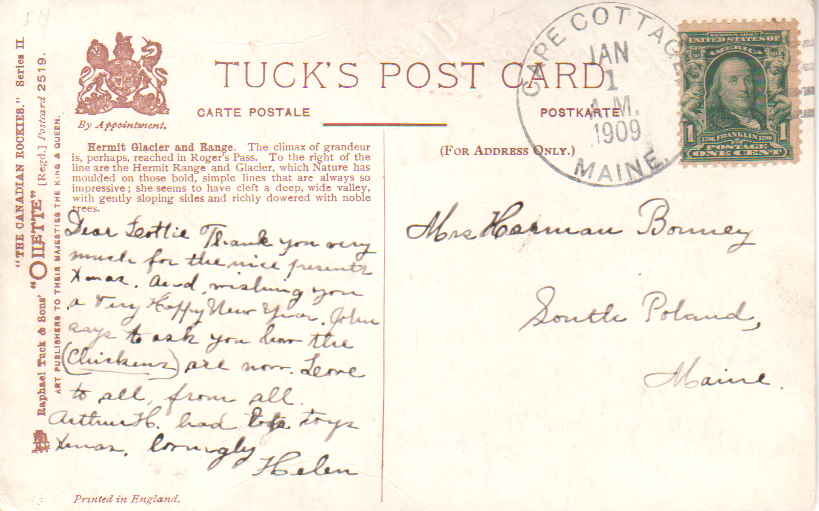 TUCK'S POST CARD
CARTE POSTALE
POSTKARTE
(FOR ADDRESS ONLY.)
By Appointment.
"THE CANADIAN ROCKIES." Series II.
Raphael Tuck & Sons' "OILETTE" [Regd.] Postcard 2519.
ART PUBLISHERS TO THEIR MAJESTIES THE KING & QUEEN.
Hermit Glacier and Range. The climax of grandeur
is, perhaps, reached in Roger's Pass. To the right of the
line are the Hermit Range and Glacier, which Nature has
moulded on those bold, simple lines that are always so
impressive; she seems to have cleft a deep, wide valley,
with gently sloping sides and richly dowered with noble
trees.
Dear Lottie Thank you very
much for the nice presents
Xmas. And, wishing you
a Very Happy New Year. John
says to ask you how the
(Chickens) are now. Love
to all, from all.
Arthur H. had toys
Xmas, lovingly
Helen
Printed in England.
CAPE COTTAGE
JAN
1
A.M.
1909
MAINE.
UNITED STATES OF
FRANKLIN
1 1
POSTAGE
ONE CENT
Mrs Herman Bonney
South Poland,
Maine.